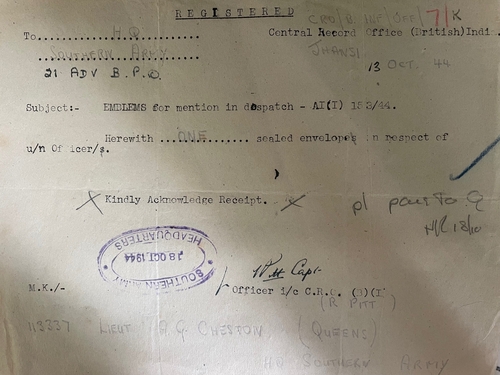 REGISTERED
CRO/B INF/OFF/ 7/K
To H.Q. Central Record Office (British)Indi
Southern Army JHANSI
21 ADV B.P.O. 13 OCT. 44
Subject:- EMBLEMS for mention in despatch - AI(I) 153/44.
Herewith ONE sealed envelopes in respect of
u/n Officer/s.
X Kindly Acknowledge Receipt. X
pl pass to Q
18/10
HEADQUARTERS
18 OCT 1944
SOUTHERN ARMY
Pitt Capt
M.K./- Officer i/c C.R.O. (B)(I)
(R PITT)
113337 LIEUT A.G CHESTON (QUEENS)
HQ SOUTHERN ARMY